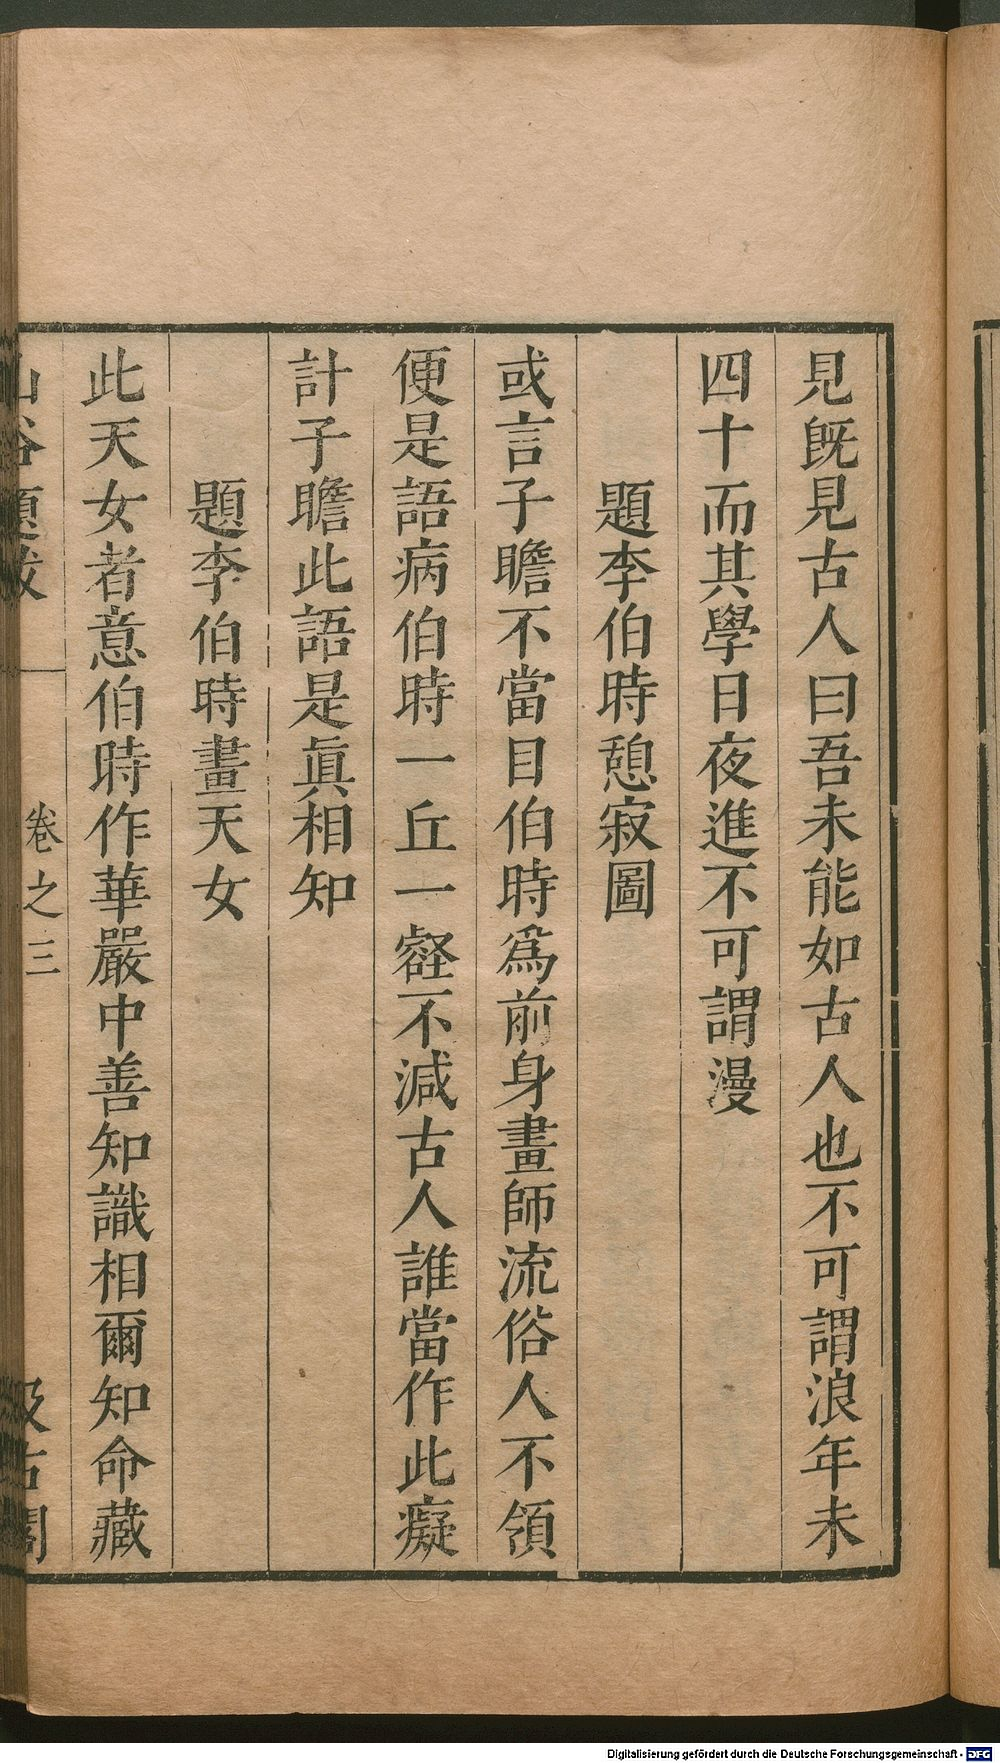 見旣見古人曰吾未能如古人也不可謂浪年未
四十而其學日夜進不可謂漫
題李伯時憩寂圖
或言子瞻不當目伯時爲前身畫師流俗人不領
便是語病伯時一丘一壑不減古人誰當作此癡
計子瞻此語是眞相知
題李伯時畫天女
此天女者意伯時作華嚴中善知識相爾知命藏
山谷題跋 卷之三 汲古閣
Digitalisierung gefördert durch die Deutsche Forschungsgemeinschaft - DFG